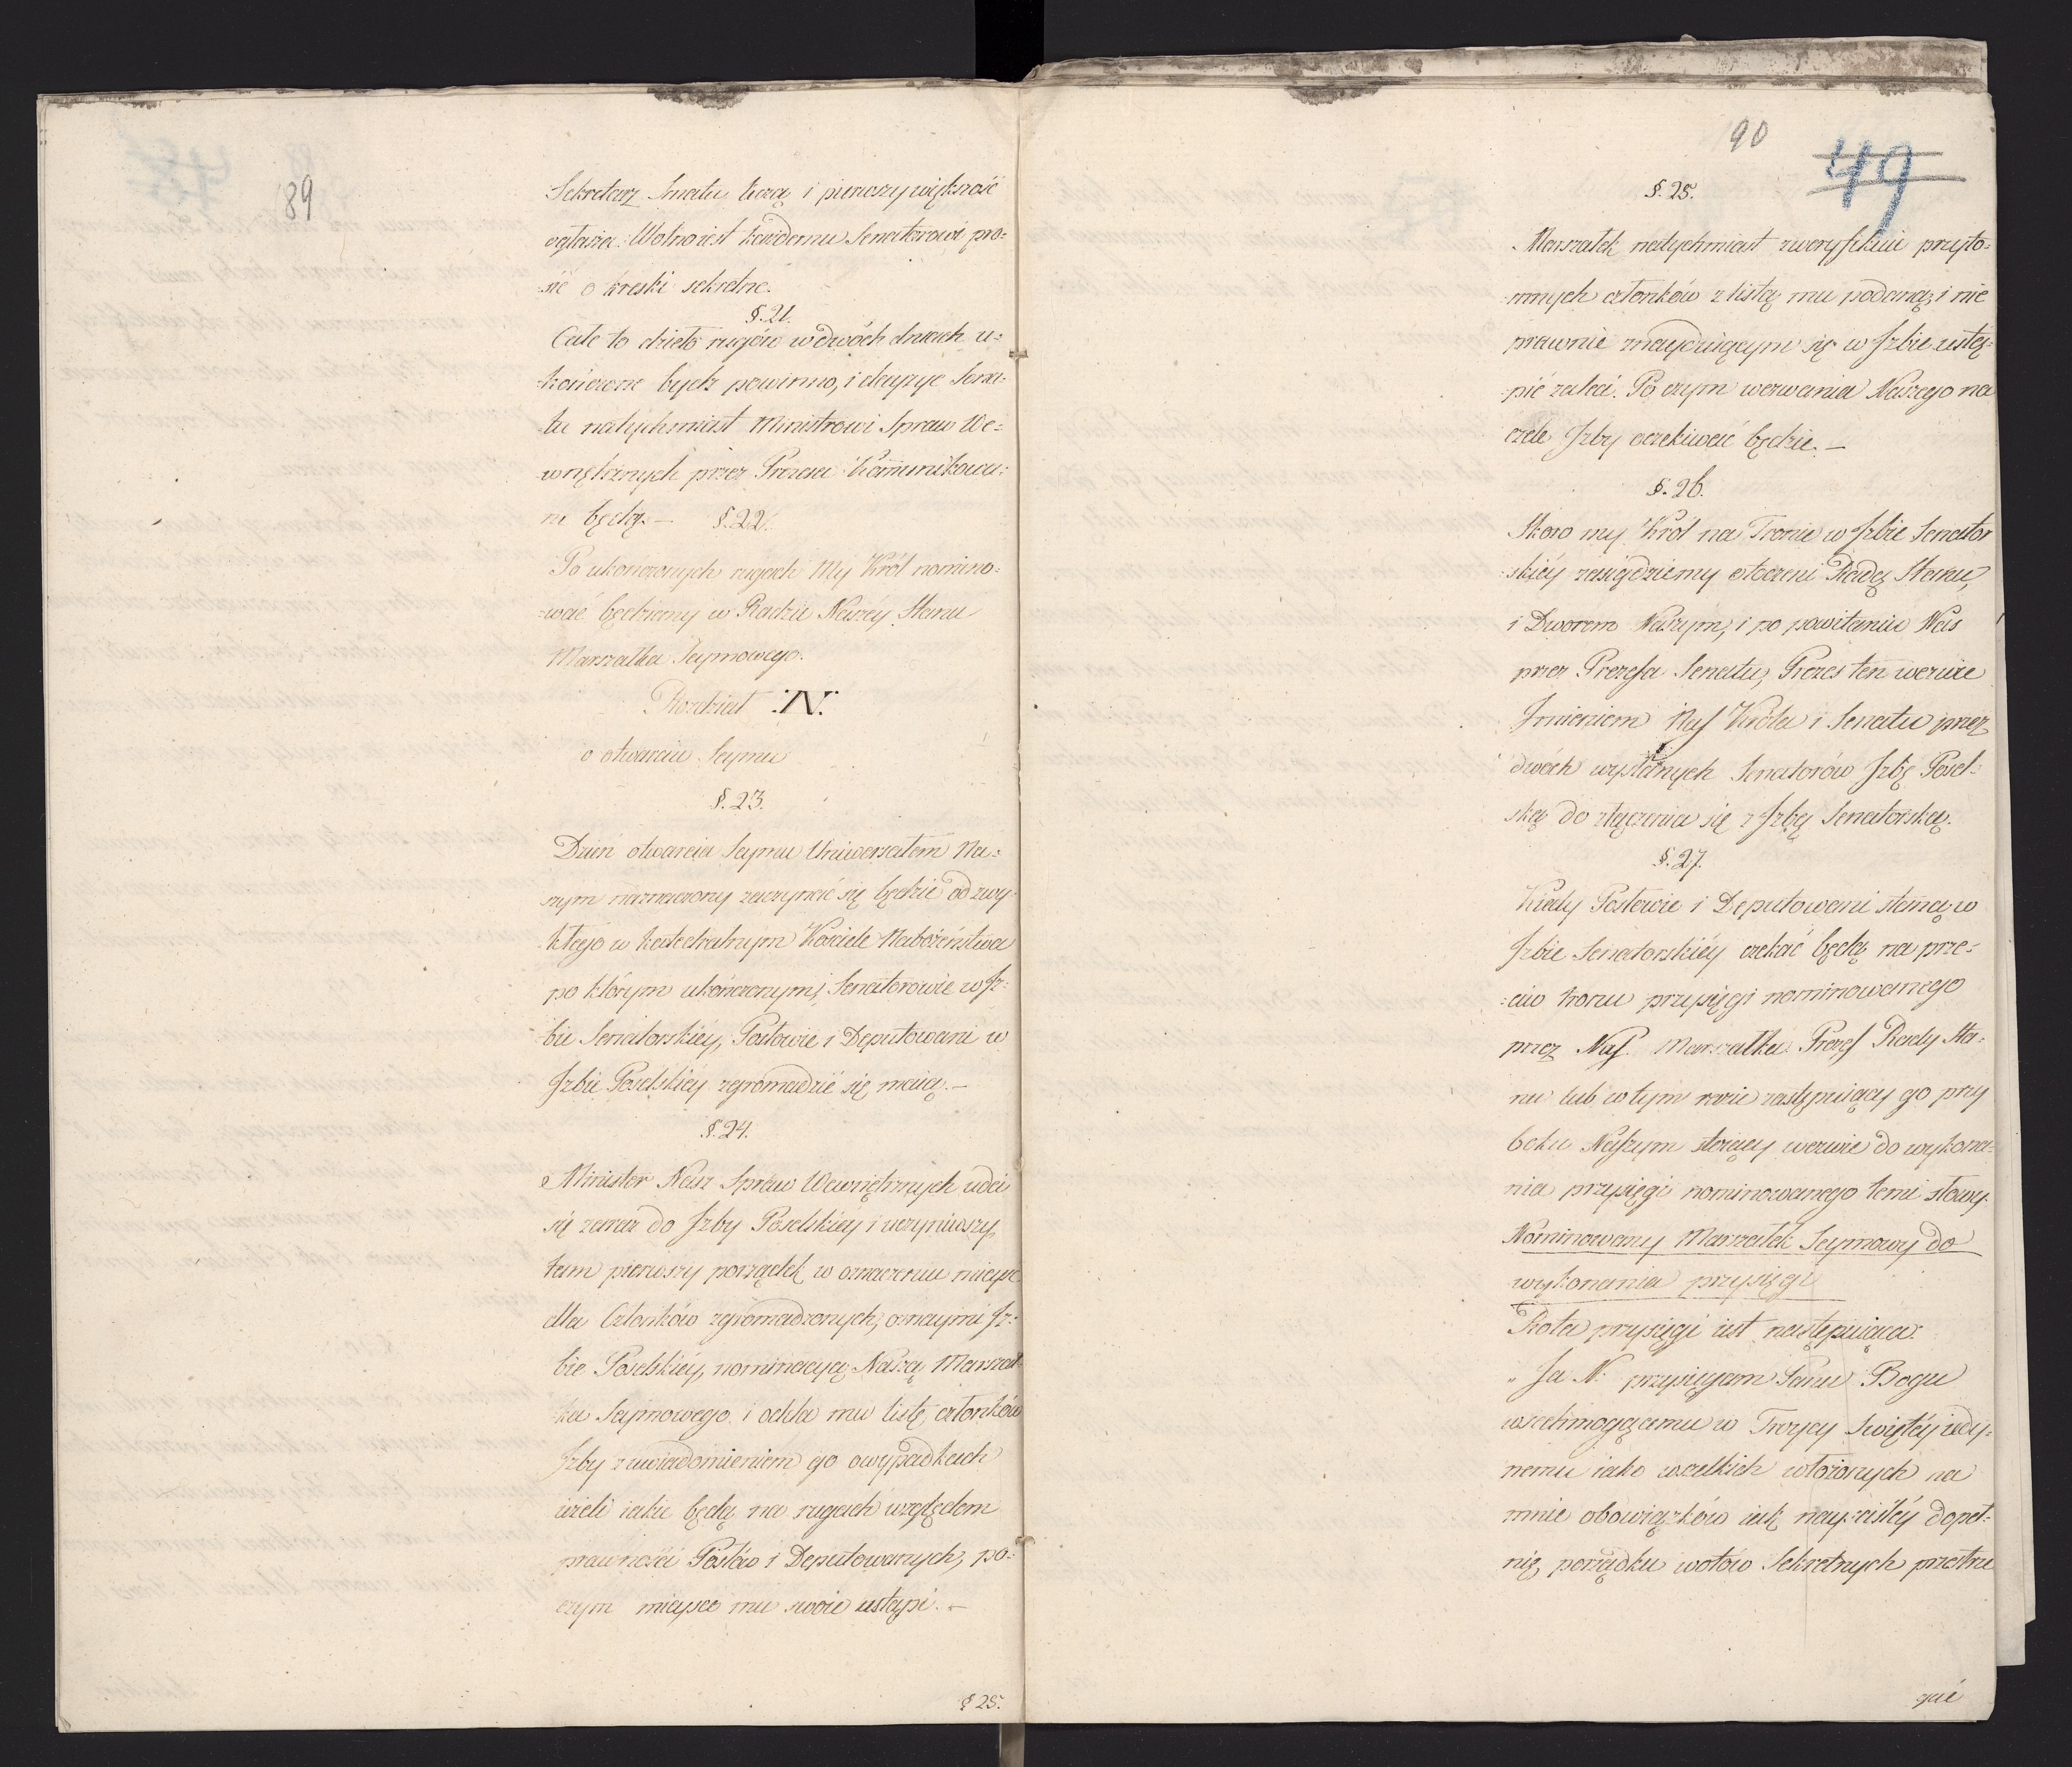 89
Sekretarz Senatu liczą i pierwszy większość
ogłasza. Wolno iest każdemu Senatorowi pro=
=sić o kreski sekretne.
§. 21.
Całe to dzieło rugów w dwóch dniach u=
=kończone bydź powinno, i decyzye Sena=
=tu natychmiast Ministrowi Spraw We=
wnętrznych przez Prezesa kommunikowa=
ne będą. — §. 22.
Po ukończonych rugach My Król nomino=
=wać będziemy w Radzie Naszéy Stanu
Marszałka Seymowego.
Rozdział IV.
o otwarciu Seymu
§. 23.
Dzień otwarcia Seymu Uniwersałem Na=
szym naznaczony zaczynać się będzie od zwy=
kłego w katedralnym Kościele Nabożeństwa
po którym ukończonym, Senatorowie w Iz=
=bie Senatorskiéy, Posłowie i Deputowani w
Izbie Poselskiéy zgromadzić się maią. —
§. 24.
Minister Nasz Spraw Wewnętrznych uda
się zaraz do Izby Poselskiéy i uczyniwszy
tam pierwszy porządek w oznaczeniu mieysc
dla Członków zgromadzonych, oznaymi Iz=
bie Poselskiéy, nominacyą Naszą Marszał=
ka Seymowego i odda mu listę członków
Izby z uwiadomieniem go o wypadkach
ieżeli iakie będą na rugach względem
prawności Posłów i Deputowanych, po=
czym mieysce mu swoie ustąpi. —
§ 25.
90
49
§. 25.
Marszałek natychmiast zweryfikuie przyto=
=mnych członków z listą mu podaną, i nie
prawnie znayduiącym się w Izbie ustą=
=pić zaleci. Po czym wezwania Naszego na
czele Izby oczekiwać będzie. —
§. 26.
Skoro my Król na Tronie w Izbie Senator
=skiéy zasiądziemy otoczeni Radą Stanu,
i Dworem Naszym, i po powitaniu Nas
przez Prezesa Senatu, Prezes ten wezwie
Imieniem Nas Króla i Senatu przez
dwóch wysłanych Senatorów Izbę Posel=
ską do złączenia się z Izbą Senatorską.
§. 27.
Kiedy Posłowie i Deputowani staną w
Izbie Senatorskiéy czekać będą na prze=
=ciw tronu przysięgi nominowanego
przez Nas Marszałka. Prezes Rady Sta=
nu lub w tym razie zastępuiący go przy
boku Naszym stoiący wezwie do wykona=
nia przysięgi nominowanego temi słowy.
Nominowany Marszałek Seymowy do
wykonania przysięgi
Rota przysięgi iest następuiąca:
„ Ja N. przysięgam Panu Bogu
wszechmogącemu w Troycy Swiętéy iedy=
nemu iako wszelkich włożonych na
mnie obowiązków iak nayściśléy dopeł=
nię, porządku wotów Sekretnych przestrze
gać